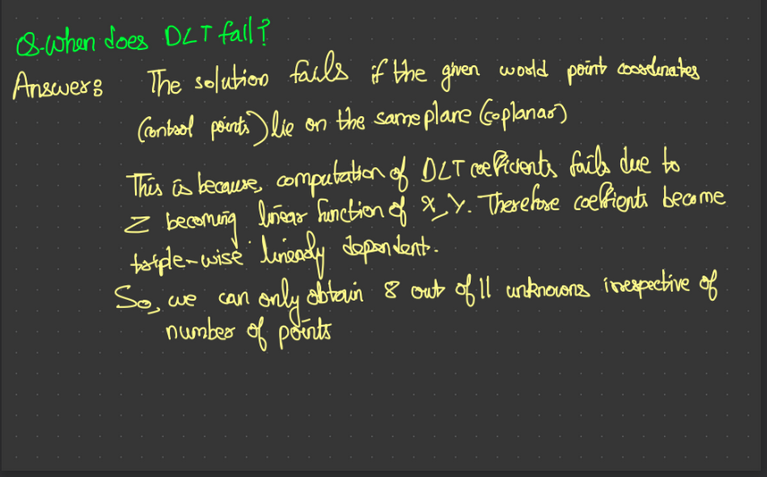 Q. When does DLT fail?
Answer: The solution fails if the given world point coordinates
(control points) lie on the same plane (coplanar)
This is because, computation of DLT coefficients fails due to
Z becoming linear function of X, Y. Therefore coefficients become
triple-wise linearly dependent.
So, we can only obtain 8 out of 11 unknowns irrespective of
number of points